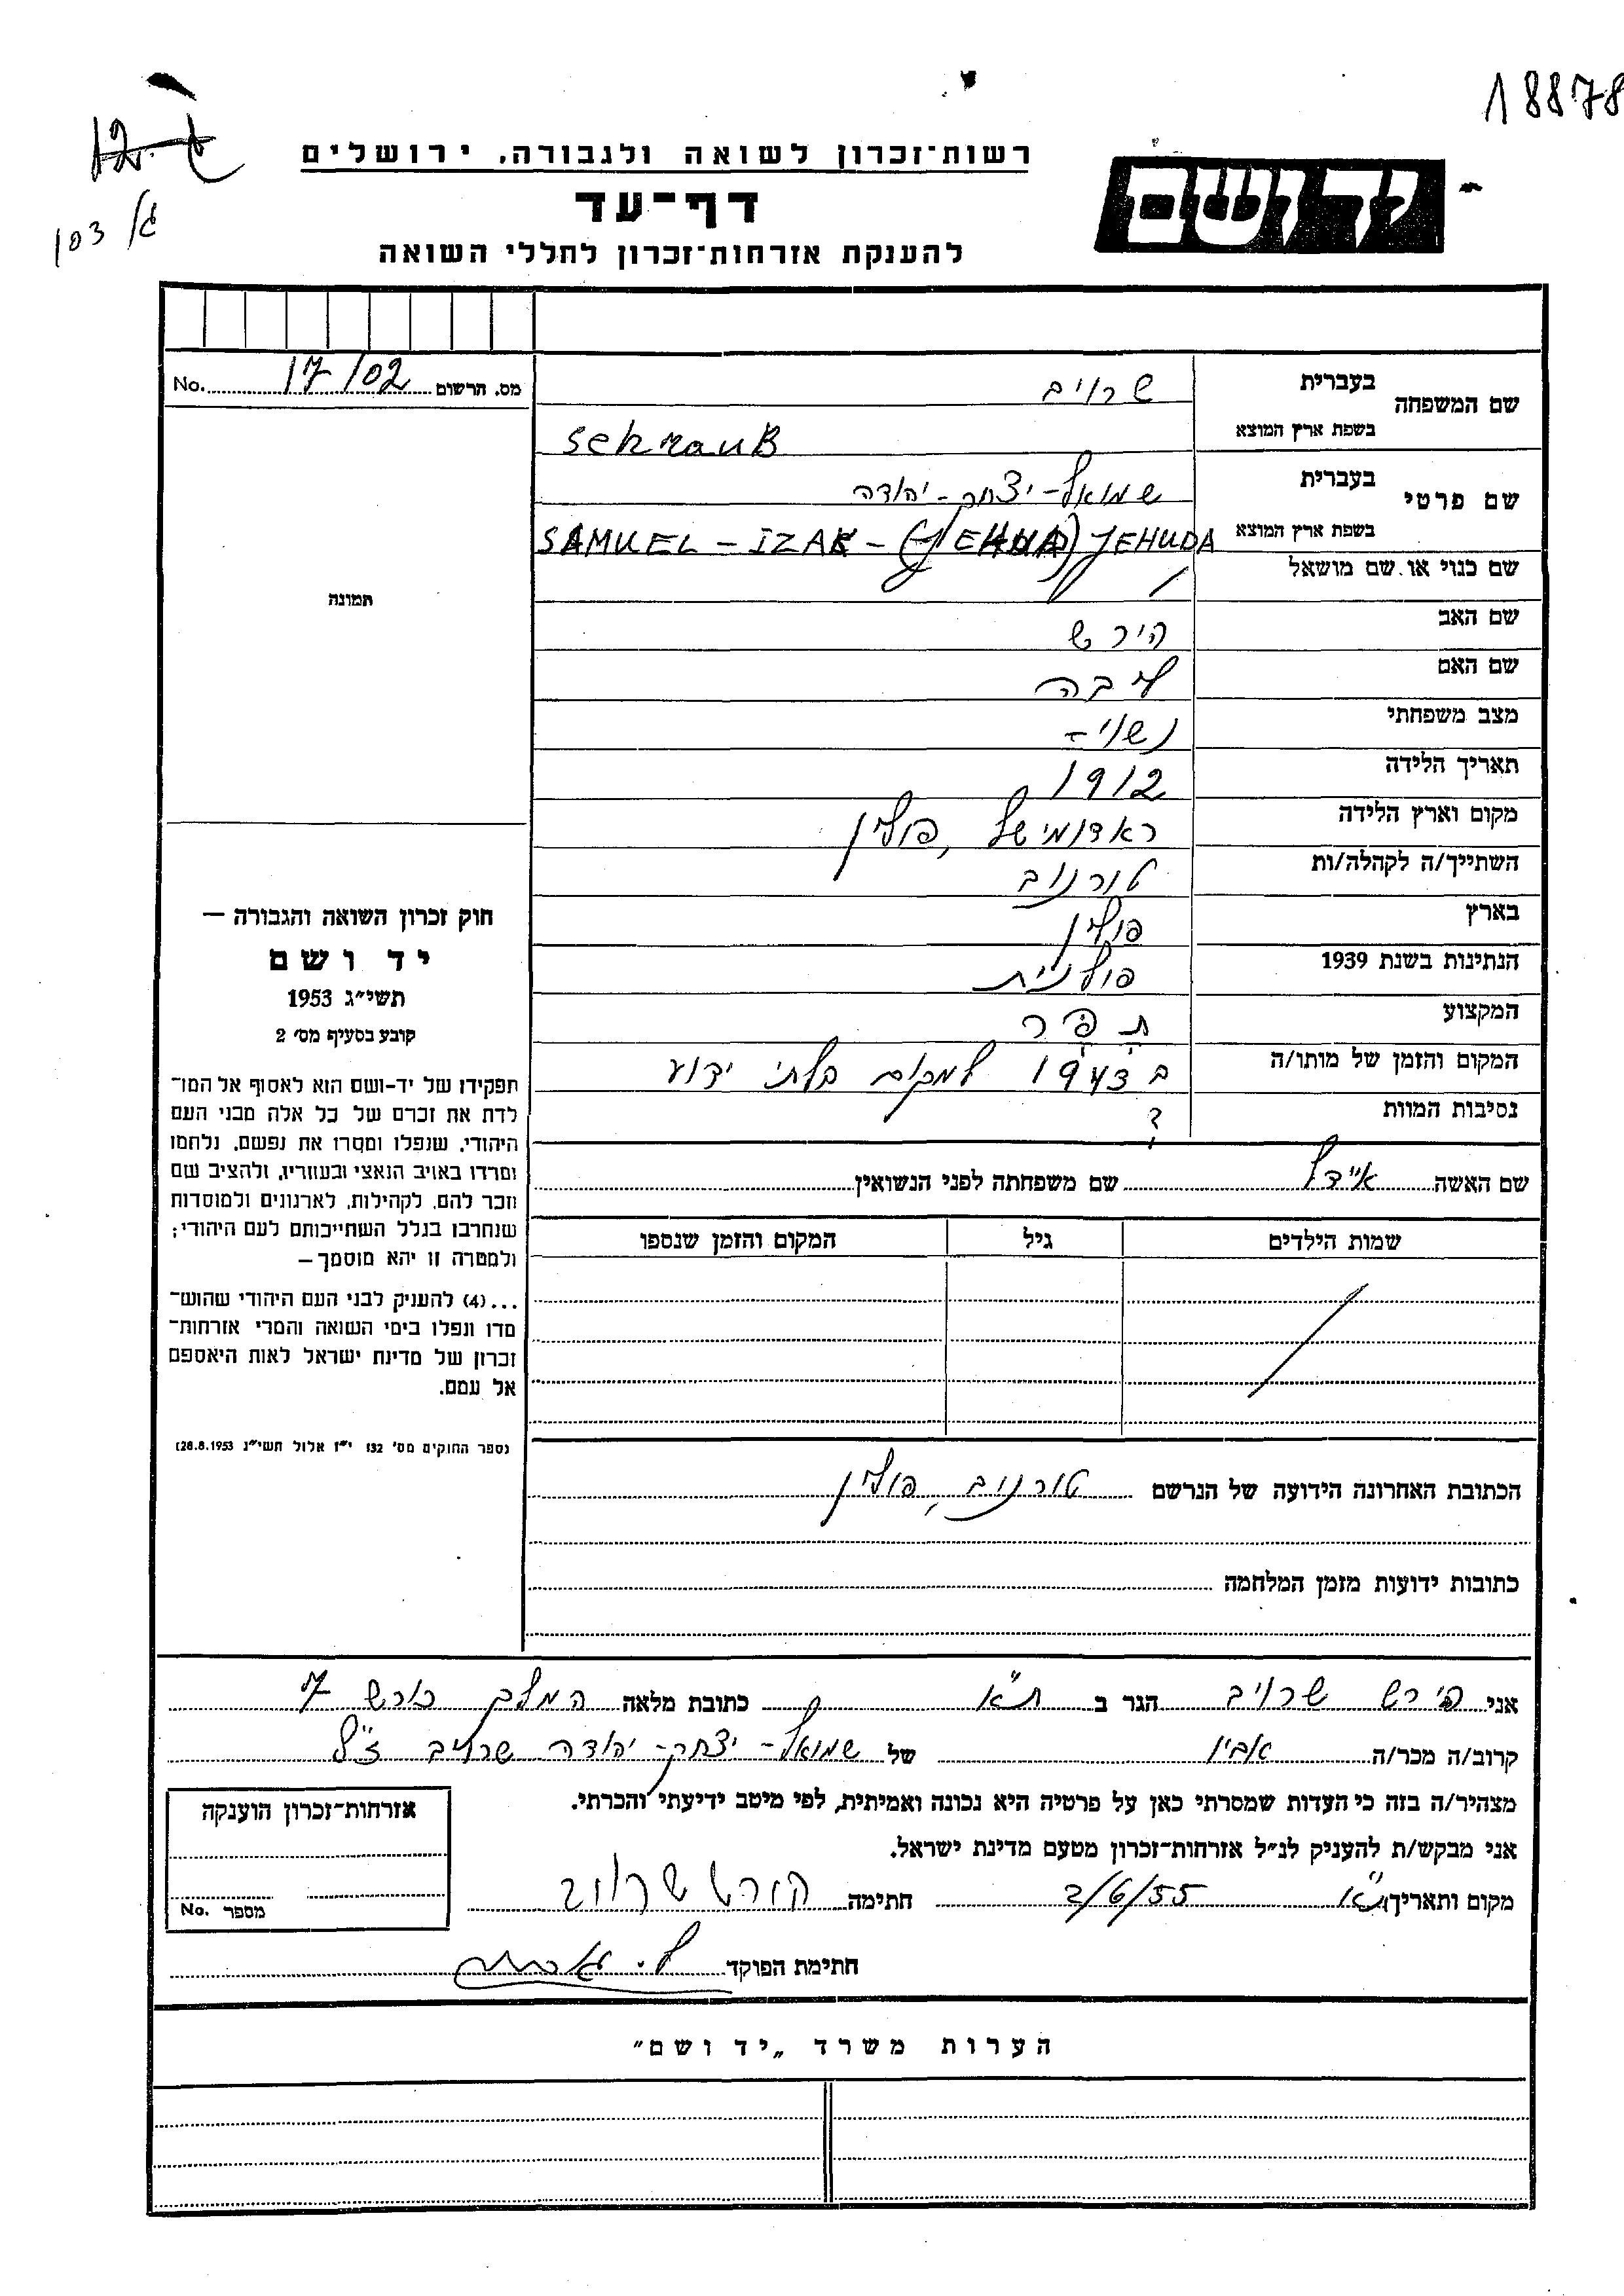 18878
ג/ 103
יד ושם
רשות־זכרון לשואה ולגבורה, ירושלים
דף־עד
להענקת אזרחות־זכרון לחללי השואה
מס. הרשום No. 17/02
שם המשפחה בעברית שרויב
בשפת ארץ המוצא SchrauB
שם פרטי בעברית שמואל-יצחק-יהודה
בשפת ארץ המוצא SAMUEL - IZAK - (JEHUDA) JEHUDA
שם כנוי או שם מושאל /
שם האב הירש
שם האם ליבה
מצב משפחתי נשוי -
תאריך הלידה 1912
מקום וארץ הלידה ראדומישל, פולין
השתייך/ה לקהלה/ות טורנוב
בארץ פולין
הנתינות בשנת 1939 פולנית
המקצוע תפר
המקום והזמן של מותו/ה ב 1943 למקום בלתי ידוע
נסיבות המוות ?
שם האשה איידל שם משפחתה לפני הנשואין
שמות הילדים גיל המקום והזמן שנספו
הכתובת האחרונה הידועה של הנרשם טורנוב, פולין
כתובות ידועות מזמן המלחמה
תמונה
חוק זכרון השואה והגבורה —
יד ושם
תשי״ג 1953
קובע בסעיף מס׳ 2
תפקידו של יד-ושם הוא לאסוף אל המו־
לדת את זכרם של כל אלה מבני העם
היהודי, שנפלו ומסרו את נפשם, נלחמו
ומרדו באויב הנאצי ובעוזריו, ולהציב שם
וזכר להם, לקהילות, לארגונים ולמוסדות
שנחרבו בגלל השתייכותם לעם היהודי;
ולמטרה זו יהא מוסמך —
...(4) להעניק לבני העם היהודי שהוש־
מדו ונפלו בימי השואה והמרי אזרחות־
זכרון של מדינת ישראל לאות היאספם
אל עמם.
(ספר החוקים מס׳ 132 י״ז אלול תשי״ג 28.8.1953)
אני הירש שרויב הגר ב ת״א כתובת מלאה המלך כורש 7
קרוב/ה מכר/ה אביו של שמואל-יצחק-יהודה שרויב ז״ל
מצהיר/ה בזה כי העדות שמסרתי כאן על פרטיה היא נכונה ואמיתית, לפי מיטב ידיעתי והכרתי.
אני מבקש/ת להעניק לנ״ל אזרחות־זכרון מטעם מדינת ישראל.
מקום ותאריך ת״א 2/6/55 חתימה הירש שרויב
חתימת הפוקד
אזרחות־זכרון הוענקה
מספר No.
הערות משרד „יד ושם״